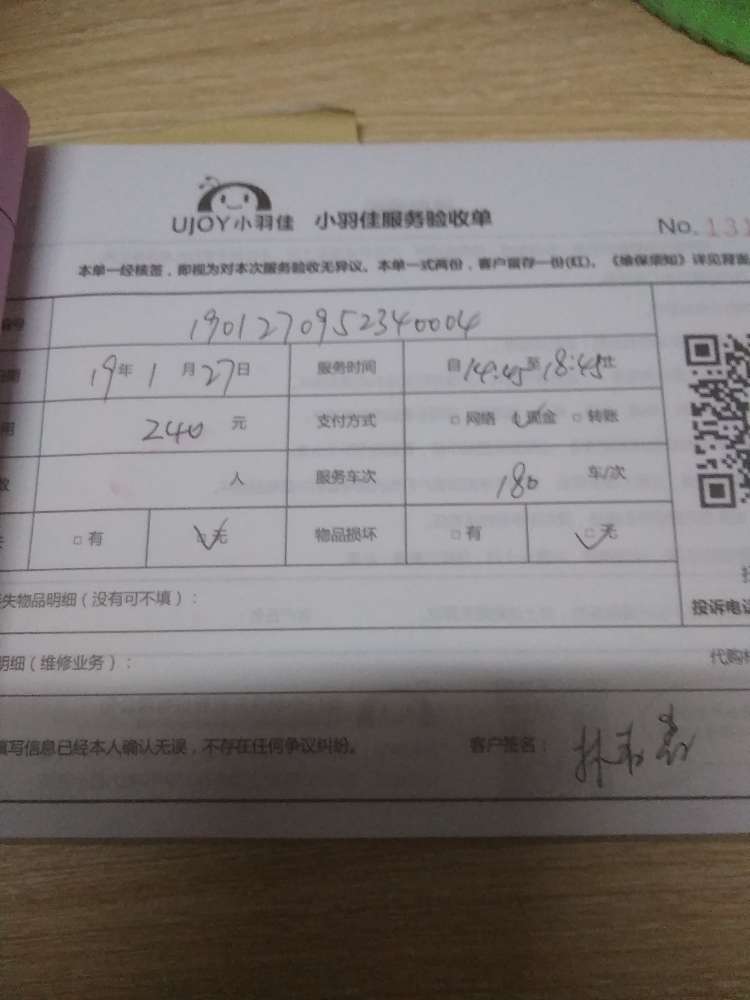 UJOY小羽佳 小羽佳服务验收单
No. 131
本单一经核签，即视为对本次服务验收无异议。本单一式两份，客户留存一份(红)。《维保须知》详见背面
号 1901270952340004
19年1月27日 服务时间 自14:45至18:45止
用 240元 支付方式 □网络 ☑现金 □转账
数 人 服务车次 180 车/次
□有 ☑无 物品损坏 □有 ☑无
失物品明细（没有可不填）：
投诉电话
明细（维修业务）： 代购
填写信息已经本人确认无误，不存在任何争议纠纷。 客户签名：